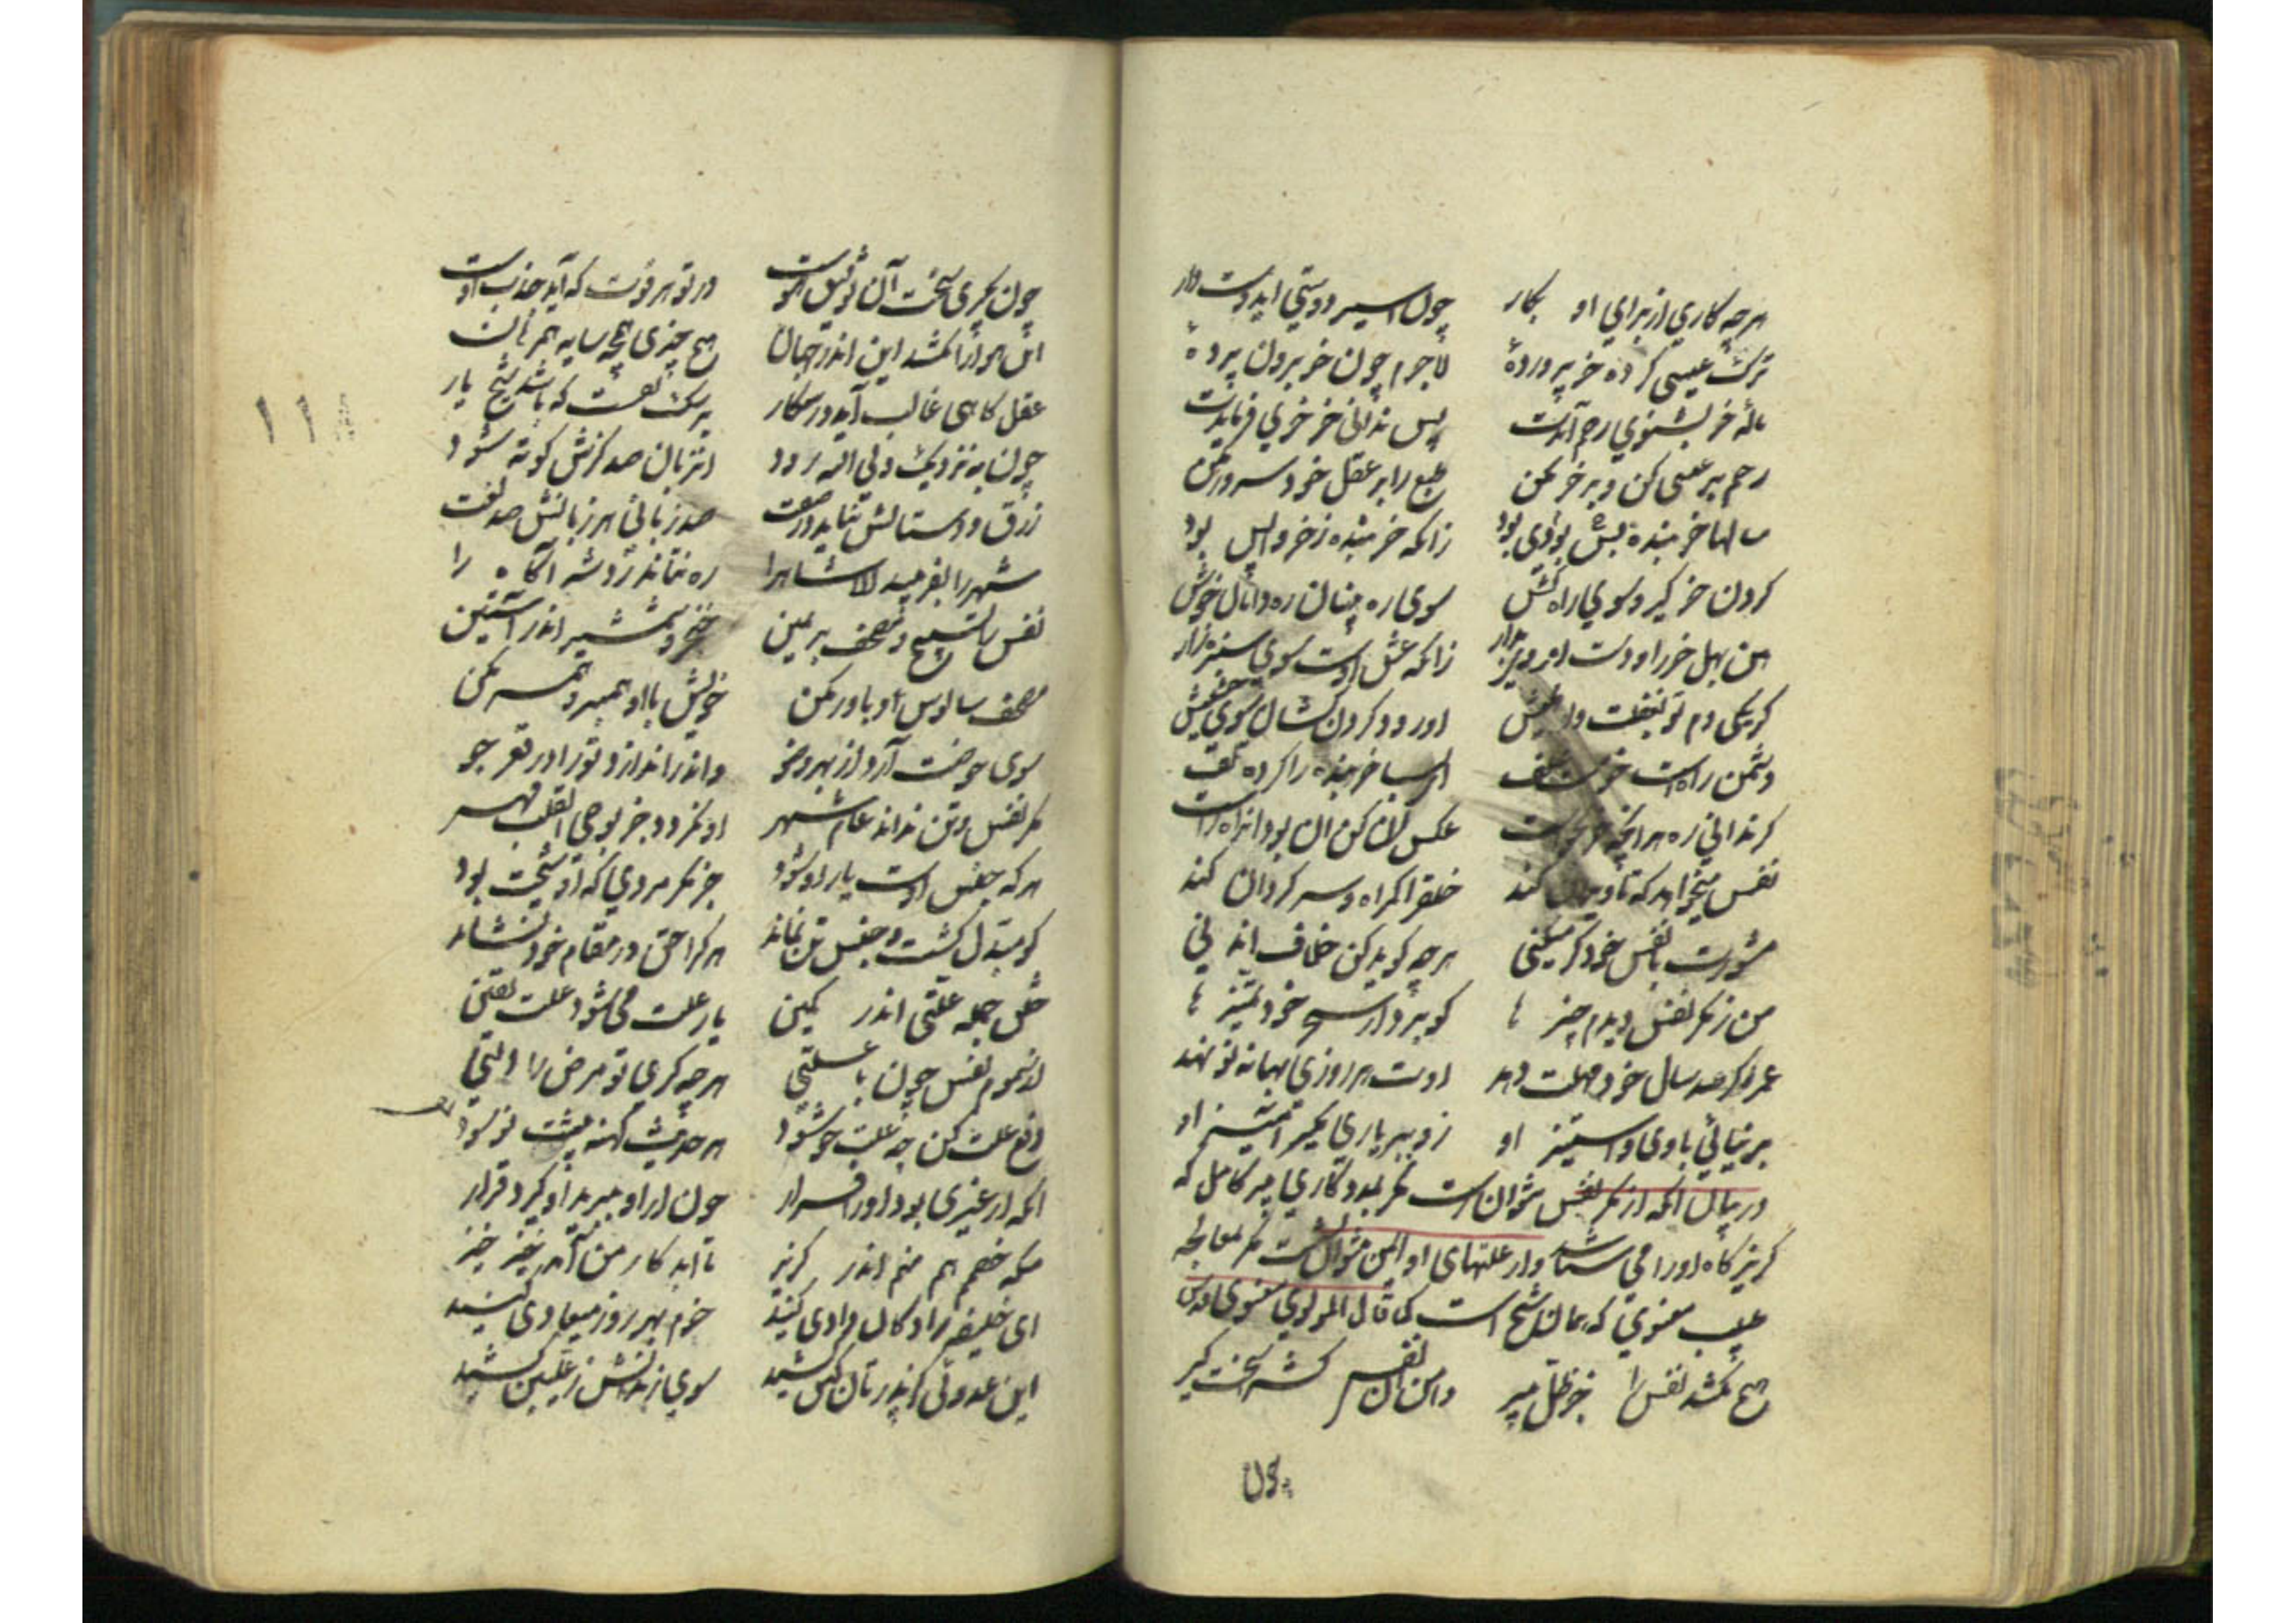 هرچه کاری از برای او بکار چون اسیر دوستی ای دوستدار
ترک عیسی کرده خر پرورده لاجرم چون خر برون پرده
ناله خر بشنوی رحم آیدت پس ندانی خر خری فرمایدت
رحم بر عیسی کن و بر خر مکن طبع را بر عقل خود سرور مکن
سالها خر بنده بودی بس بود زانکه خر بنده ز خر واپس بود
گردن خر گیر و سوی راه کش سوی ره بینان ره دانان خوش
هین بهل خر را و دست از وی مدار زانکه عشق اوست سوی سبزه زار
گر یکی دم تو بغفلت واهلیش او رود فرسنگها سوی حشیش
دشمن راهست خر مست علف ای بسا خر بنده را کرده تلف
گر ندانی ره هر آنچه خر بخواست عکس آن کن آن بود آن راه راست
نفس میخواهد که تا ویران کند خلق را گمراه و سرگردان کند
مشورت با نفس خود گر میکنی هرچه گوید کن خلاف آن دنی
من ز مکر نفس دیدم چیزها کو برد از سحر خود تمییزها
عمر اگر صد سال خود مهلت دهد اوت هر روزی بهانه نو نهد
بر نیائی با وی و استیز او رو بر یاری بگیر آمیز او
در بیان آنکه از مکر نفس نتوان رست مگر بمددکاری پیر کامل که
گریزگاه او را می شناسد و از علتهای او ایمن نتوان گشت مگر بمعالجه
طبیب معنوی که همان شیخ است کما قال المولوی المعنوی قدس
هیچ نکشد نفس را جز ظل پیر دامن آن نفس کش را سخت گیر
چون
چون بگیری سخت آن توفیق هوست در تو هر قوت که آید جذب اوست
این هوا را نشکند اندر جهان هیچ چیزی همچو سایه همرهان
عقل گاهی غالب آید در شکار بر سگ نفست که باشد شیخ یار
چون به نزدیک ولی الله رود آن زبان صد گزش کوته شود
زرق و دستانش نیاید در صفت صد زبانی هر زبانش صد لغت
شهر را بفریبد الا شاه را ره نتاند زد شه آگاه را
نفس با تسبیح و مصحف بر یمین خنجر و شمشیر اندر آستین
مصحف سالوس او باور مکن خویش با او همبر و همسر مکن
سوی حوضت آرد از بهر وضو و اندر اندازد ترا در قعر جو
مکر نفس و تن نداند عام شهر او نگردد جز بوحی القلب قهر
هرکه جنس اوست یار او شود جز مگر مردی که او شیخت بود
کو مبدل گشت و جنس تن نماند هرکرا حق در مقام خود نشاند
خلق جمله علتی اندر کمین یار علت می شود علت یقین
از سموم نفس چون با علتی هرچه گیری تو مرض را آلتی
دفع علت کن چو علت خو شود هر حدیث کهنه پیشت نو شود
آنکه از غیری بود او را فرار چون از او ببرید او گیرد قرار
منکه خصمم هم منم اندر گریز تا ابد کار من آمد خیز خیز